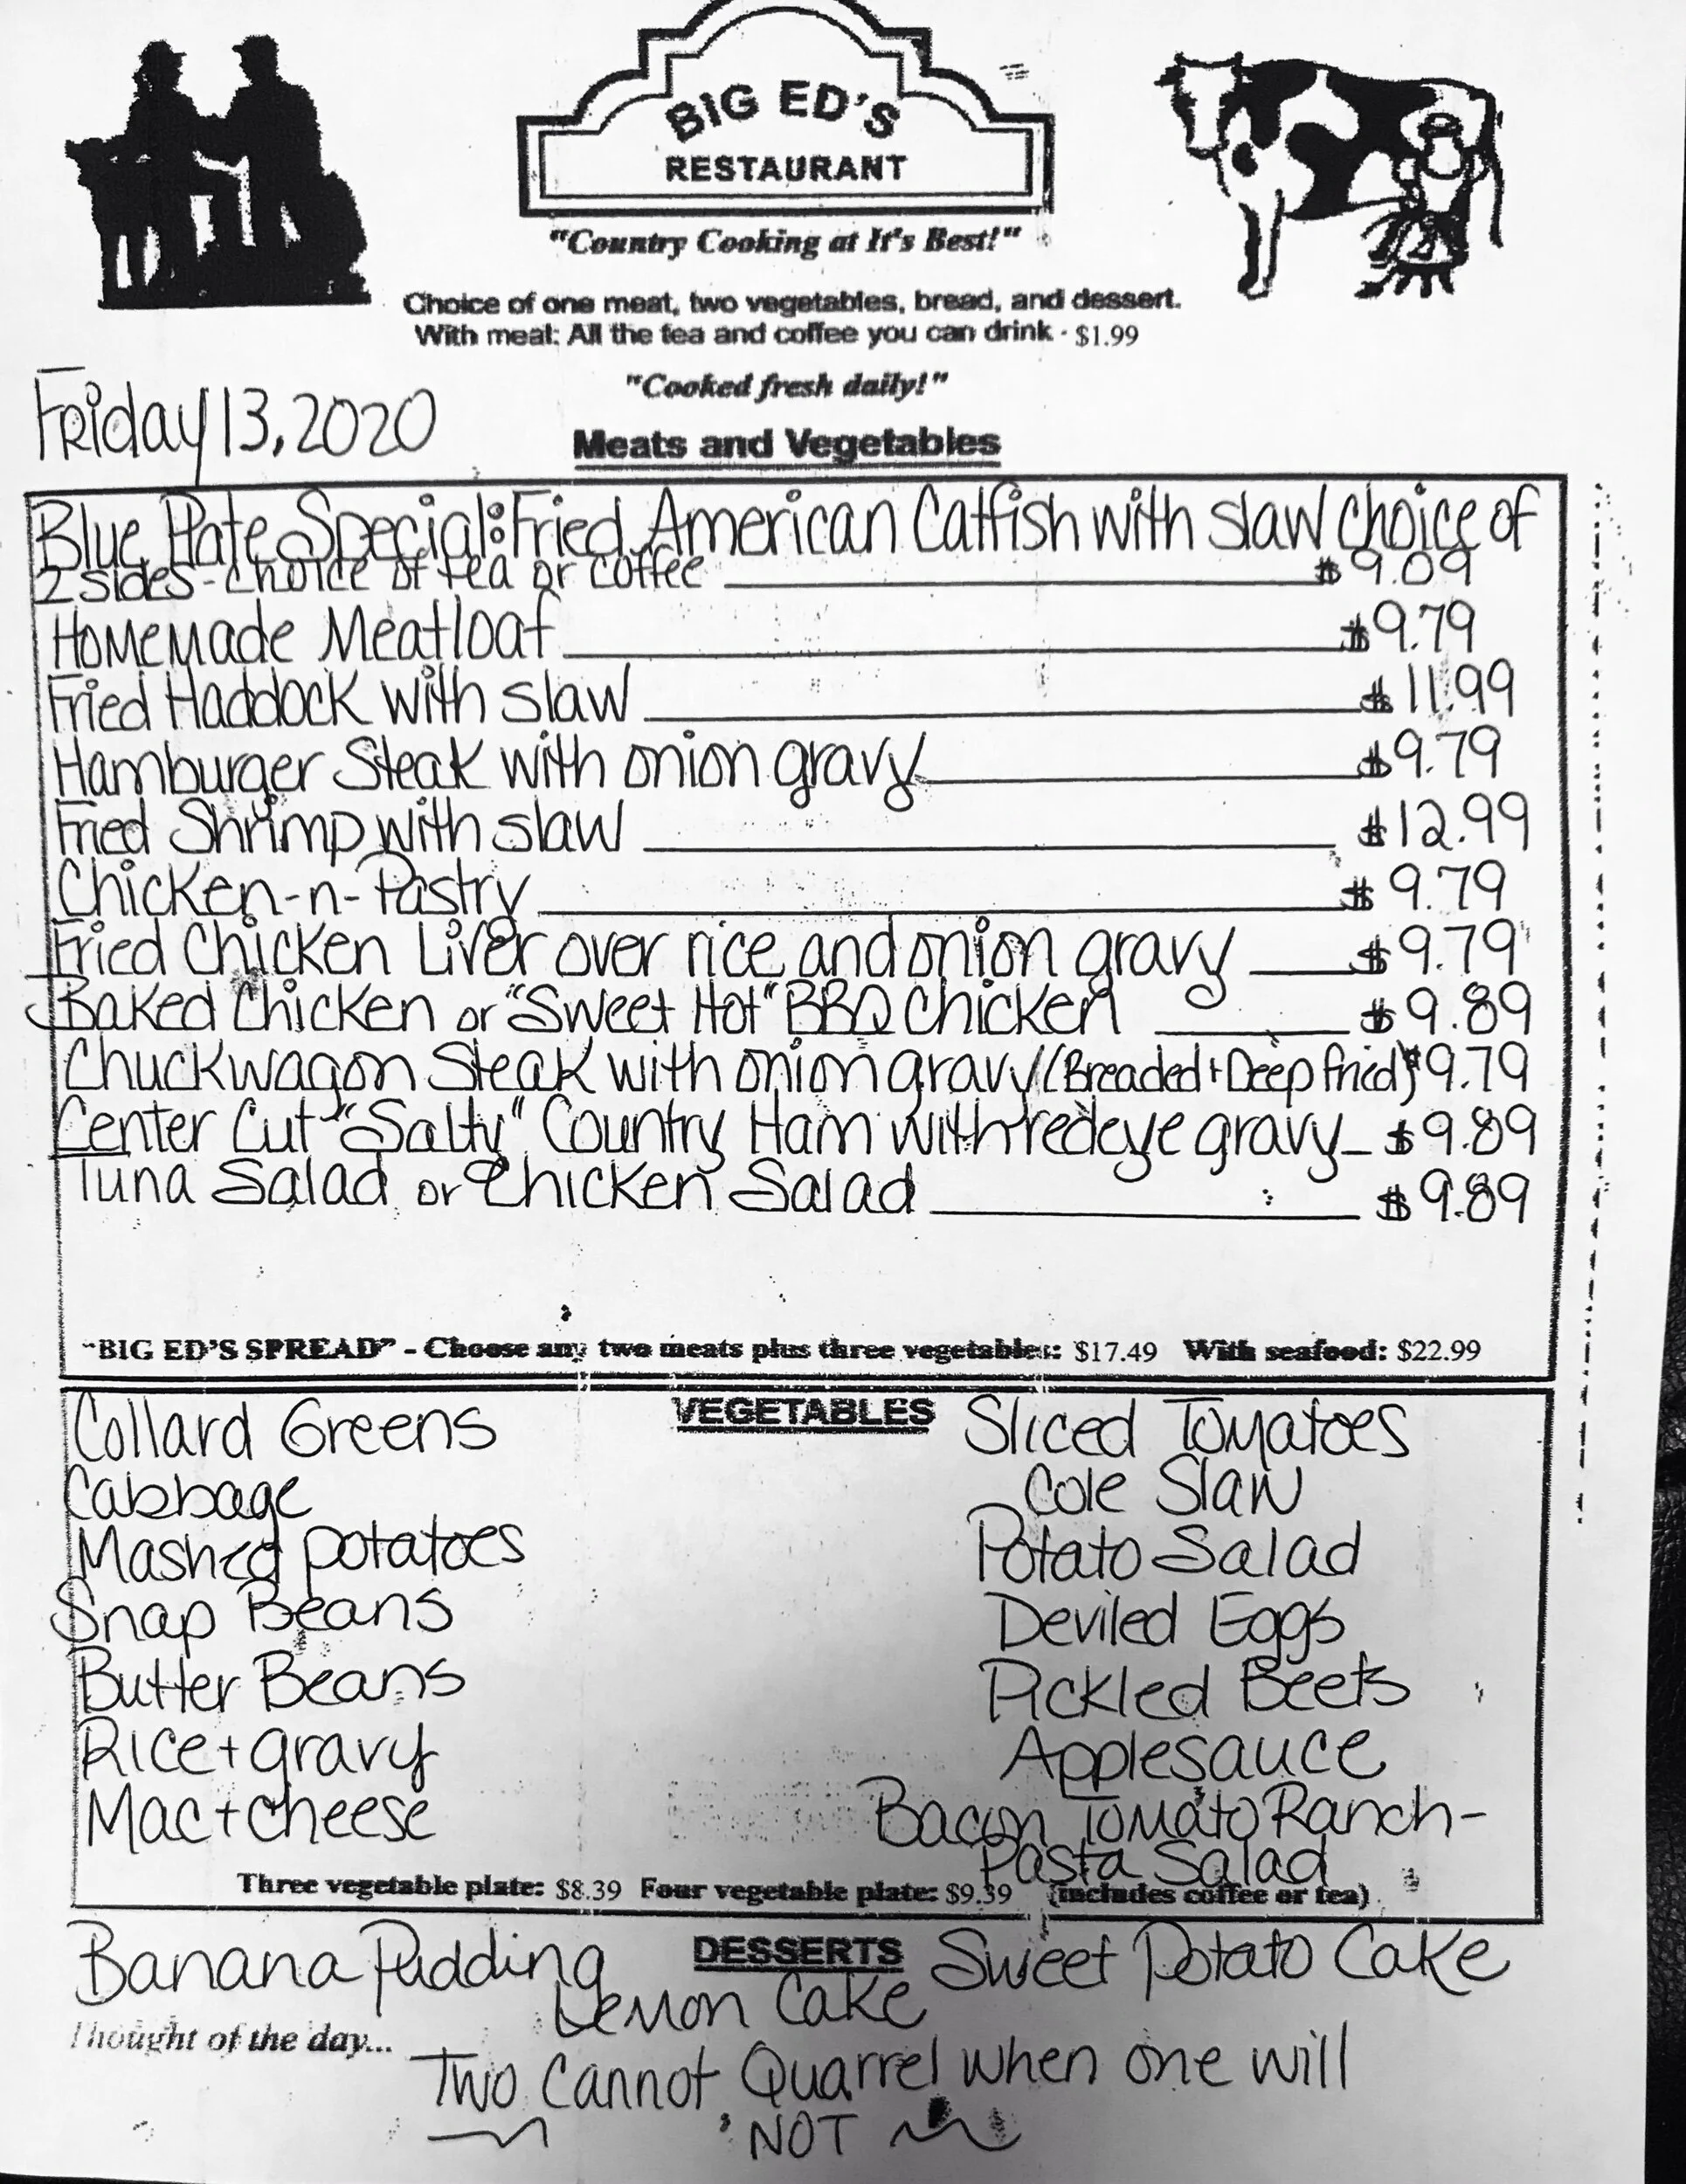 BIG ED'S
RESTAURANT
"Country Cooking at It's Best!"
Choice of one meat, two vegetables, bread, and dessert.
With meal: All the tea and coffee you can drink - $1.99
"Cooked fresh daily!"
Friday 13, 2020
Meats and Vegetables
Blue Plate Special: Fried American Catfish with slaw choice of
2 sides - choice of tea or coffee $9.09
Homemade Meatloaf $9.79
Fried Haddock with slaw $11.99
Hamburger Steak with onion gravy $9.79
Fried Shrimp with slaw $12.99
Chicken-n-Pastry $9.79
Fried Chicken Liver over rice and onion gravy $9.79
Baked Chicken or "Sweet Hot" BBQ Chicken $9.89
Chuckwagon Steak with onion gravy (Breaded + Deep fried) $9.79
Center Cut "Salty" Country Ham with redeye gravy $9.89
Tuna Salad or Chicken Salad $9.89
"BIG ED'S SPREAD" - Choose any two meats plus three vegetables: $17.49 With seafood: $22.99
VEGETABLES
Collard Greens
Cabbage
Mashed potatoes
Snap Beans
Butter Beans
Rice + gravy
Mac + cheese
Sliced Tomatoes
Cole Slaw
Potato Salad
Deviled Eggs
Pickled Beets
Applesauce
Bacon Tomato Ranch-
Pasta Salad
Three vegetable plate: $8.39 Four vegetable plate: $9.39 (includes coffee or tea)
DESSERTS
Banana Pudding
Lemon Cake
Sweet Potato Cake
Thought of the day...
Two Cannot Quarrel when one will
NOT